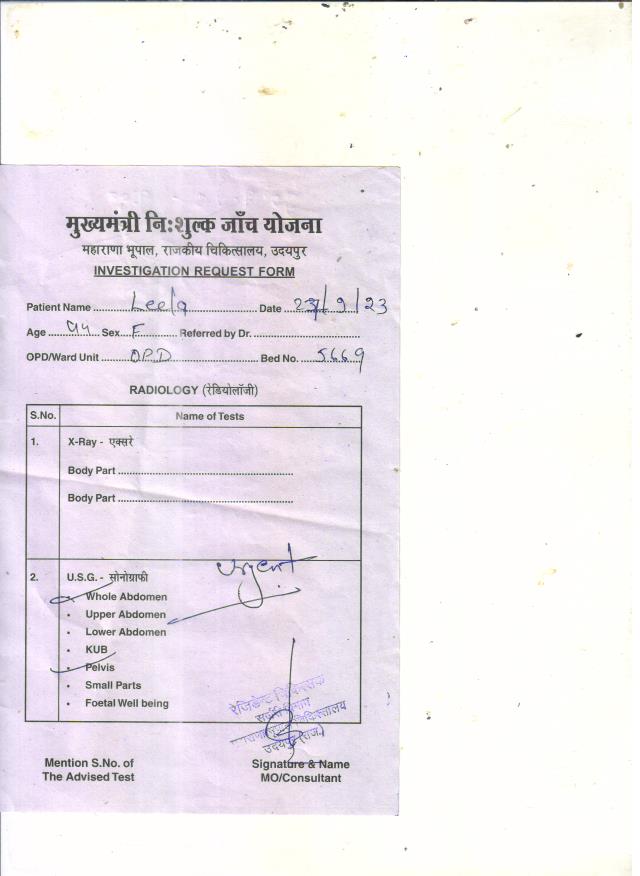 मुख्यमंत्री निःशुल्क जाँच योजना
महाराणा भूपाल, राजकीय चिकित्सालय, उदयपुर
INVESTIGATION REQUEST FORM
Patient Name Leela Date 23/9/23
Age Sex F Referred by Dr.
OPD/Ward Unit OPD Bed No. 5669
RADIOLOGY (रेडियोलॉजी)
S.No. Name of Tests
1. X-Ray - एक्सरे
Body Part
Body Part
urgent
2. U.S.G. - सोनोग्राफी
Whole Abdomen
• Upper Abdomen
• Lower Abdomen
• KUB
• Pelvis
• Small Parts
• Foetal Well being
रेजिडेन्ट चिकित्सक
सर्जरी विभाग
चिकित्सालय
उदयपुर (राज.)
Mention S.No. of Signature & Name
The Advised Test MO/Consultant